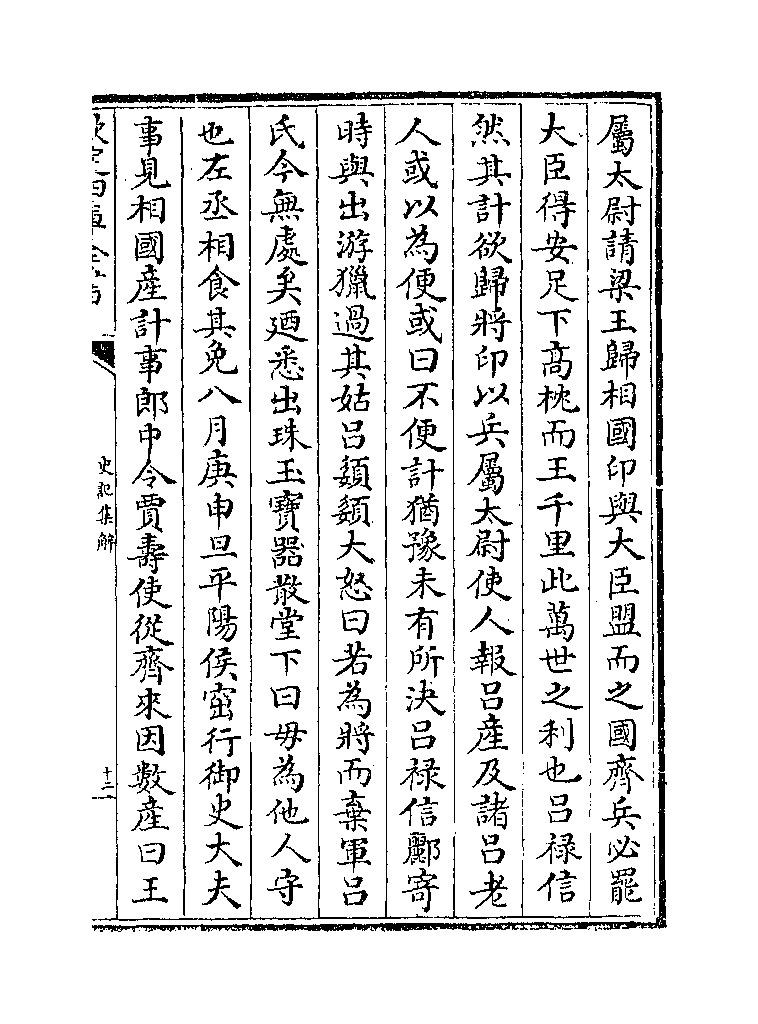 屬太尉請梁王歸相國印與大臣盟而之國齊兵必罷
大臣得安足下髙枕而王千里此萬世之利也吕禄信
然其計欲歸將印以兵屬太尉使人報吕産及諸吕老
人或以為便或曰不便計猶豫未有所決吕禄信酈寄
時與出游獵過其姑吕嬃嬃大怒曰若為將而棄軍吕
氏今無處矣廼悉出珠玉寳器散堂下曰毋為他人守
也左丞相食其免八月庚申旦平陽侯窋行御史大夫
事見相國産計事郎中令賈壽使從齊來因數産曰王
史記集解
十二